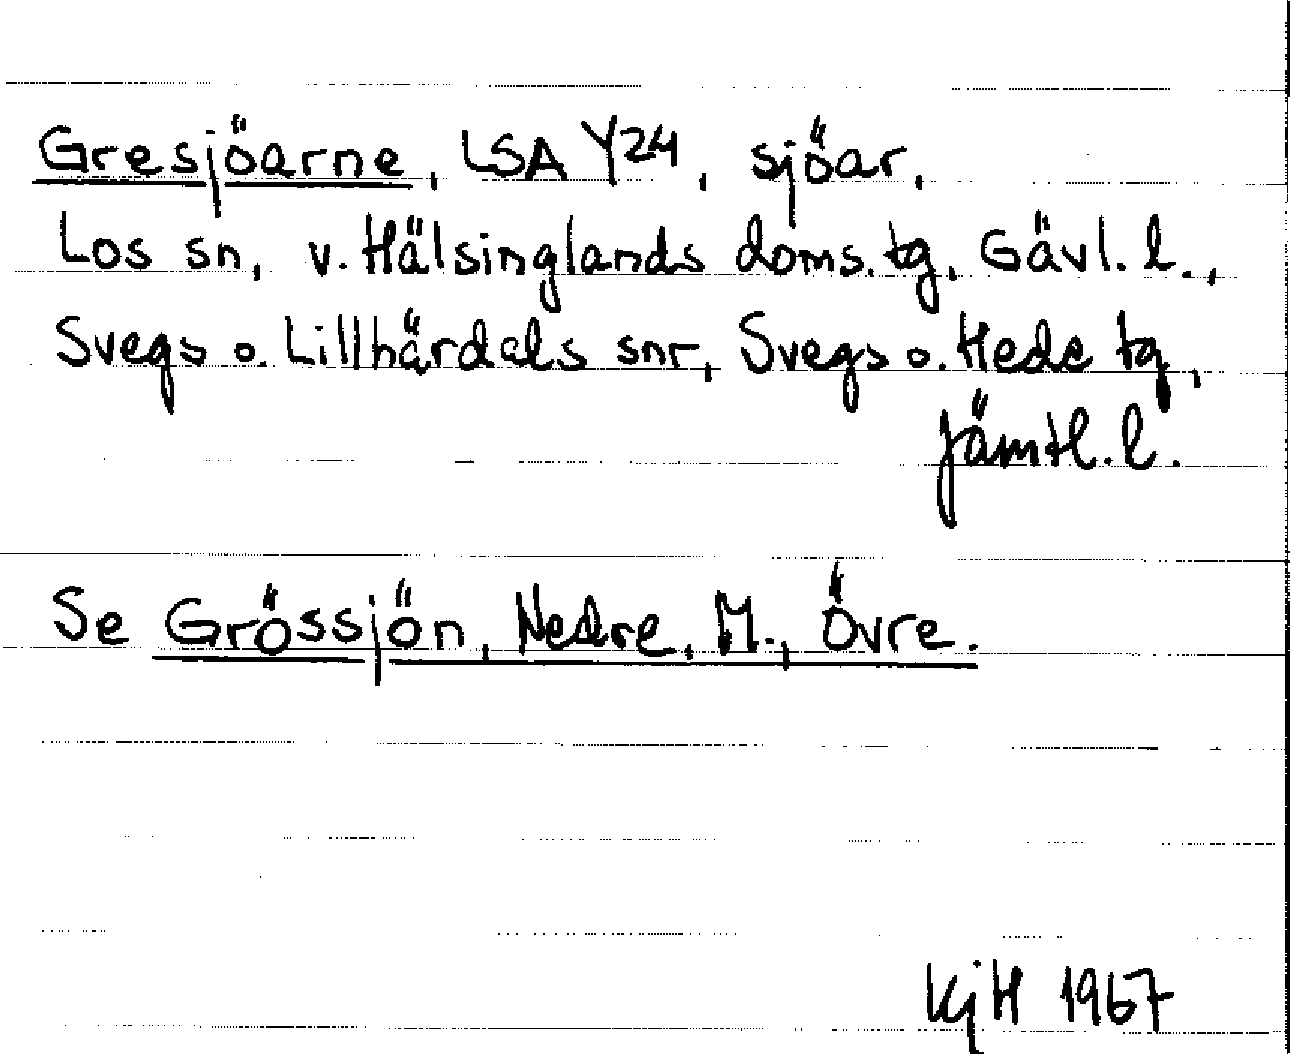 Gresjöarne, LSA Y24, sjöar,
Los sn, v. Hälsinglands doms. tg, Gävl. l.,
Svegs o. Lillhärdals snr, Svegs o. Hede tg,
Jämtl. l.
Se Grössjön, Nedre, M., Övre.
KjH 1967